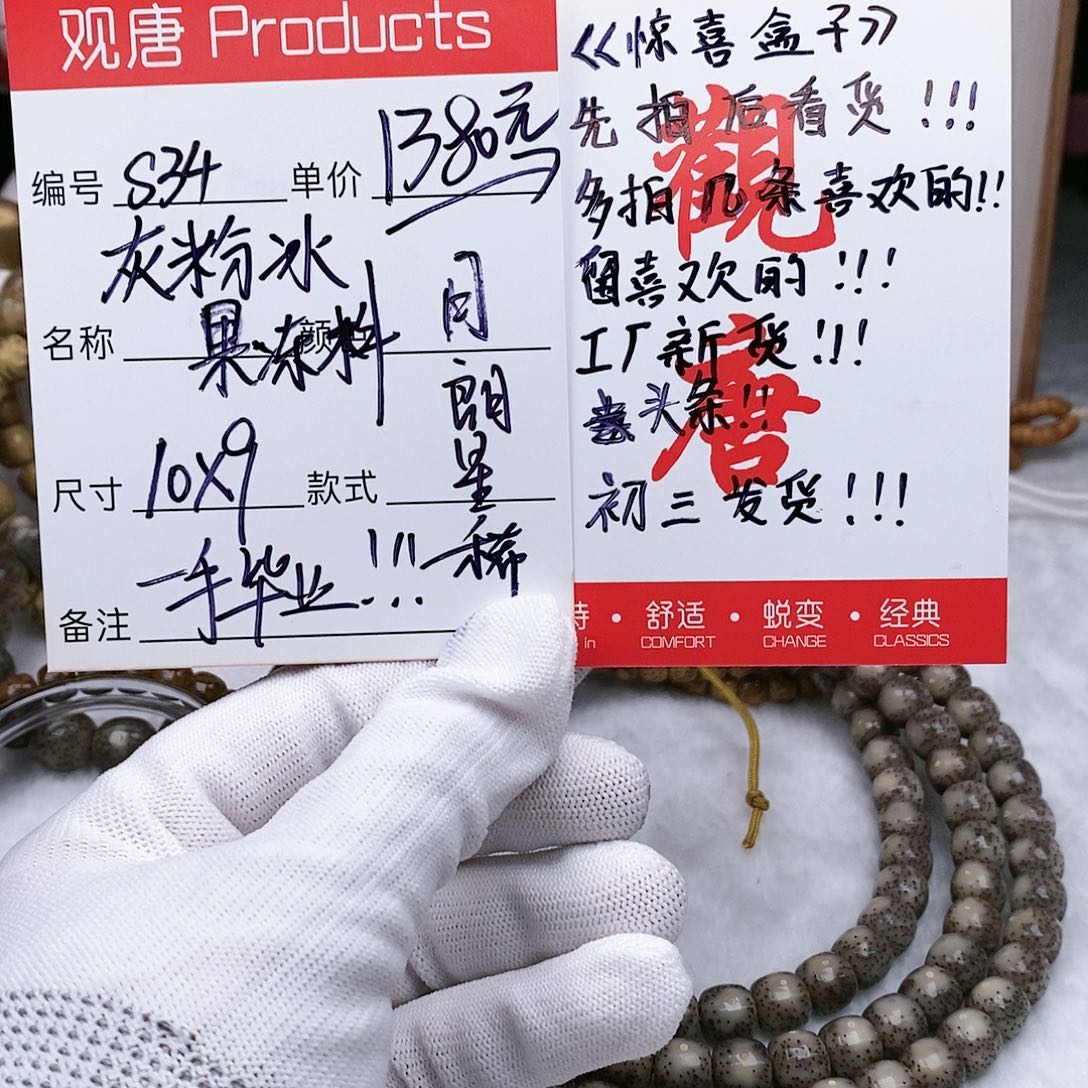 观唐 Products
编号 S34 单价 1380元
灰粉冰
名称 果冻料 颜色
月朗星稀
尺寸 10X9 款式
一手毕业!!!
备注
《惊喜盒子》
先拍后看货!!!
多拍几条喜欢的!!
留喜欢的!!!
工厂新货!!!
头条!!
初三发货!!!
觀唐
持 · 舒适 · 蜕变 · 经典
in COMFORT CHANGE CLASSICS